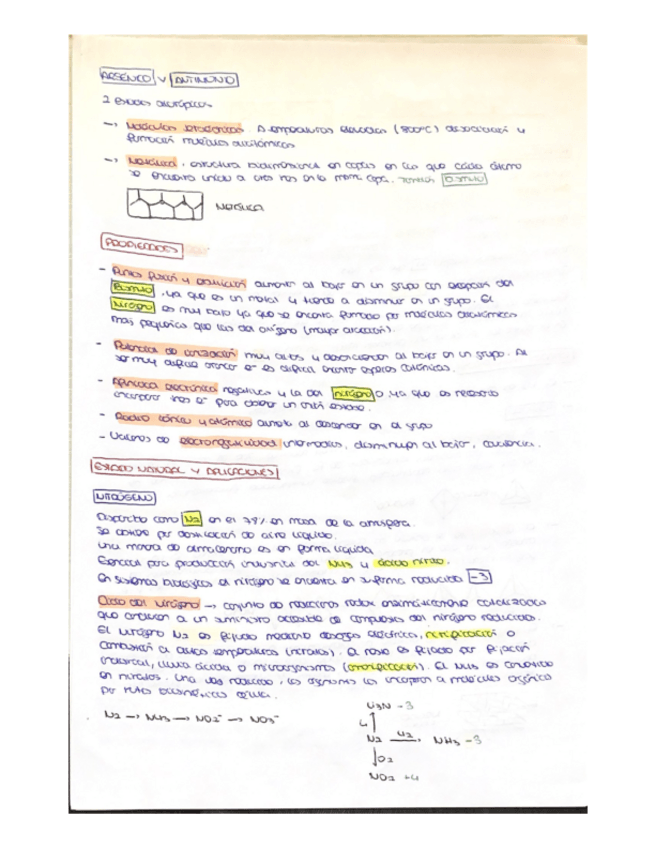 ARSÉNICO Y ANTIMONIO
2 Estados alotrópicos
→ Moléculas tetraédricas. A temperaturas elevadas (800ºC) disociación y
formación moléculas diatómicas
→ Metálica, estructura bidimensional en capas en las que cada átomo
se encuentra unido a otros tres en la misma capa. También Bismuto
METÁLICA
PROPIEDADES
- Puntos fusión y ebullición aumentan al bajar en un grupo con excepción del
Bismuto, ya que es un metal y tiende a disminuir en un grupo. El
Nitrógeno es muy bajo ya que se encuentra formado por moléculas diatómicas
más pequeñas que las del oxígeno (mayor atracción).
- Potencial de ionización muy altos y descienden al bajar en un grupo. Al
ser muy difícil arrancar e- es difícil encontrar especies catiónicas.
- Afinidad electrónica negativas y la del nitrógeno 0 ya que es necesario
incorporar tres e- para obtener un anión estable.
- Radio iónico y atómico aumenta al descender en el grupo
- Valores de electronegatividad intermedios, disminuyen al bajar, covalencia.
ESTADO NATURAL Y APLICACIONES
NITRÓGENO
Disponible como N2 en el 78% en masa de la atmósfera.
Se obtiene por destilación del aire líquido.
Una manera de almacenarlo es en forma líquida
Esencial para producción industrial del NH3 y ácido nítrico.
En sistemas biológicos el nitrógeno se encuentra en su forma reducida -3
Ciclo del nitrógeno → conjunto de reacciones redox enzimáticamente catalizadas
que conducen a un suministro accesible de compuestos del nitrógeno reducidos.
El nitrógeno N2 es fijado mediante descargas eléctricas, nitrificación o
combustión a altas temperaturas (nitratos). El resto es fijado por fijación
industrial, lluvia ácida o microorganismos (amonificación). El NH3 es convertido
en nitratos. Una vez reducido, los organismos los incorporan a moléculas orgánicas
por rutas biosintéticas
N2 → NH3 → NO2- → NO3-
Li3N -3
Li
N2 H2 NH3 -3
O2
NO2 +4